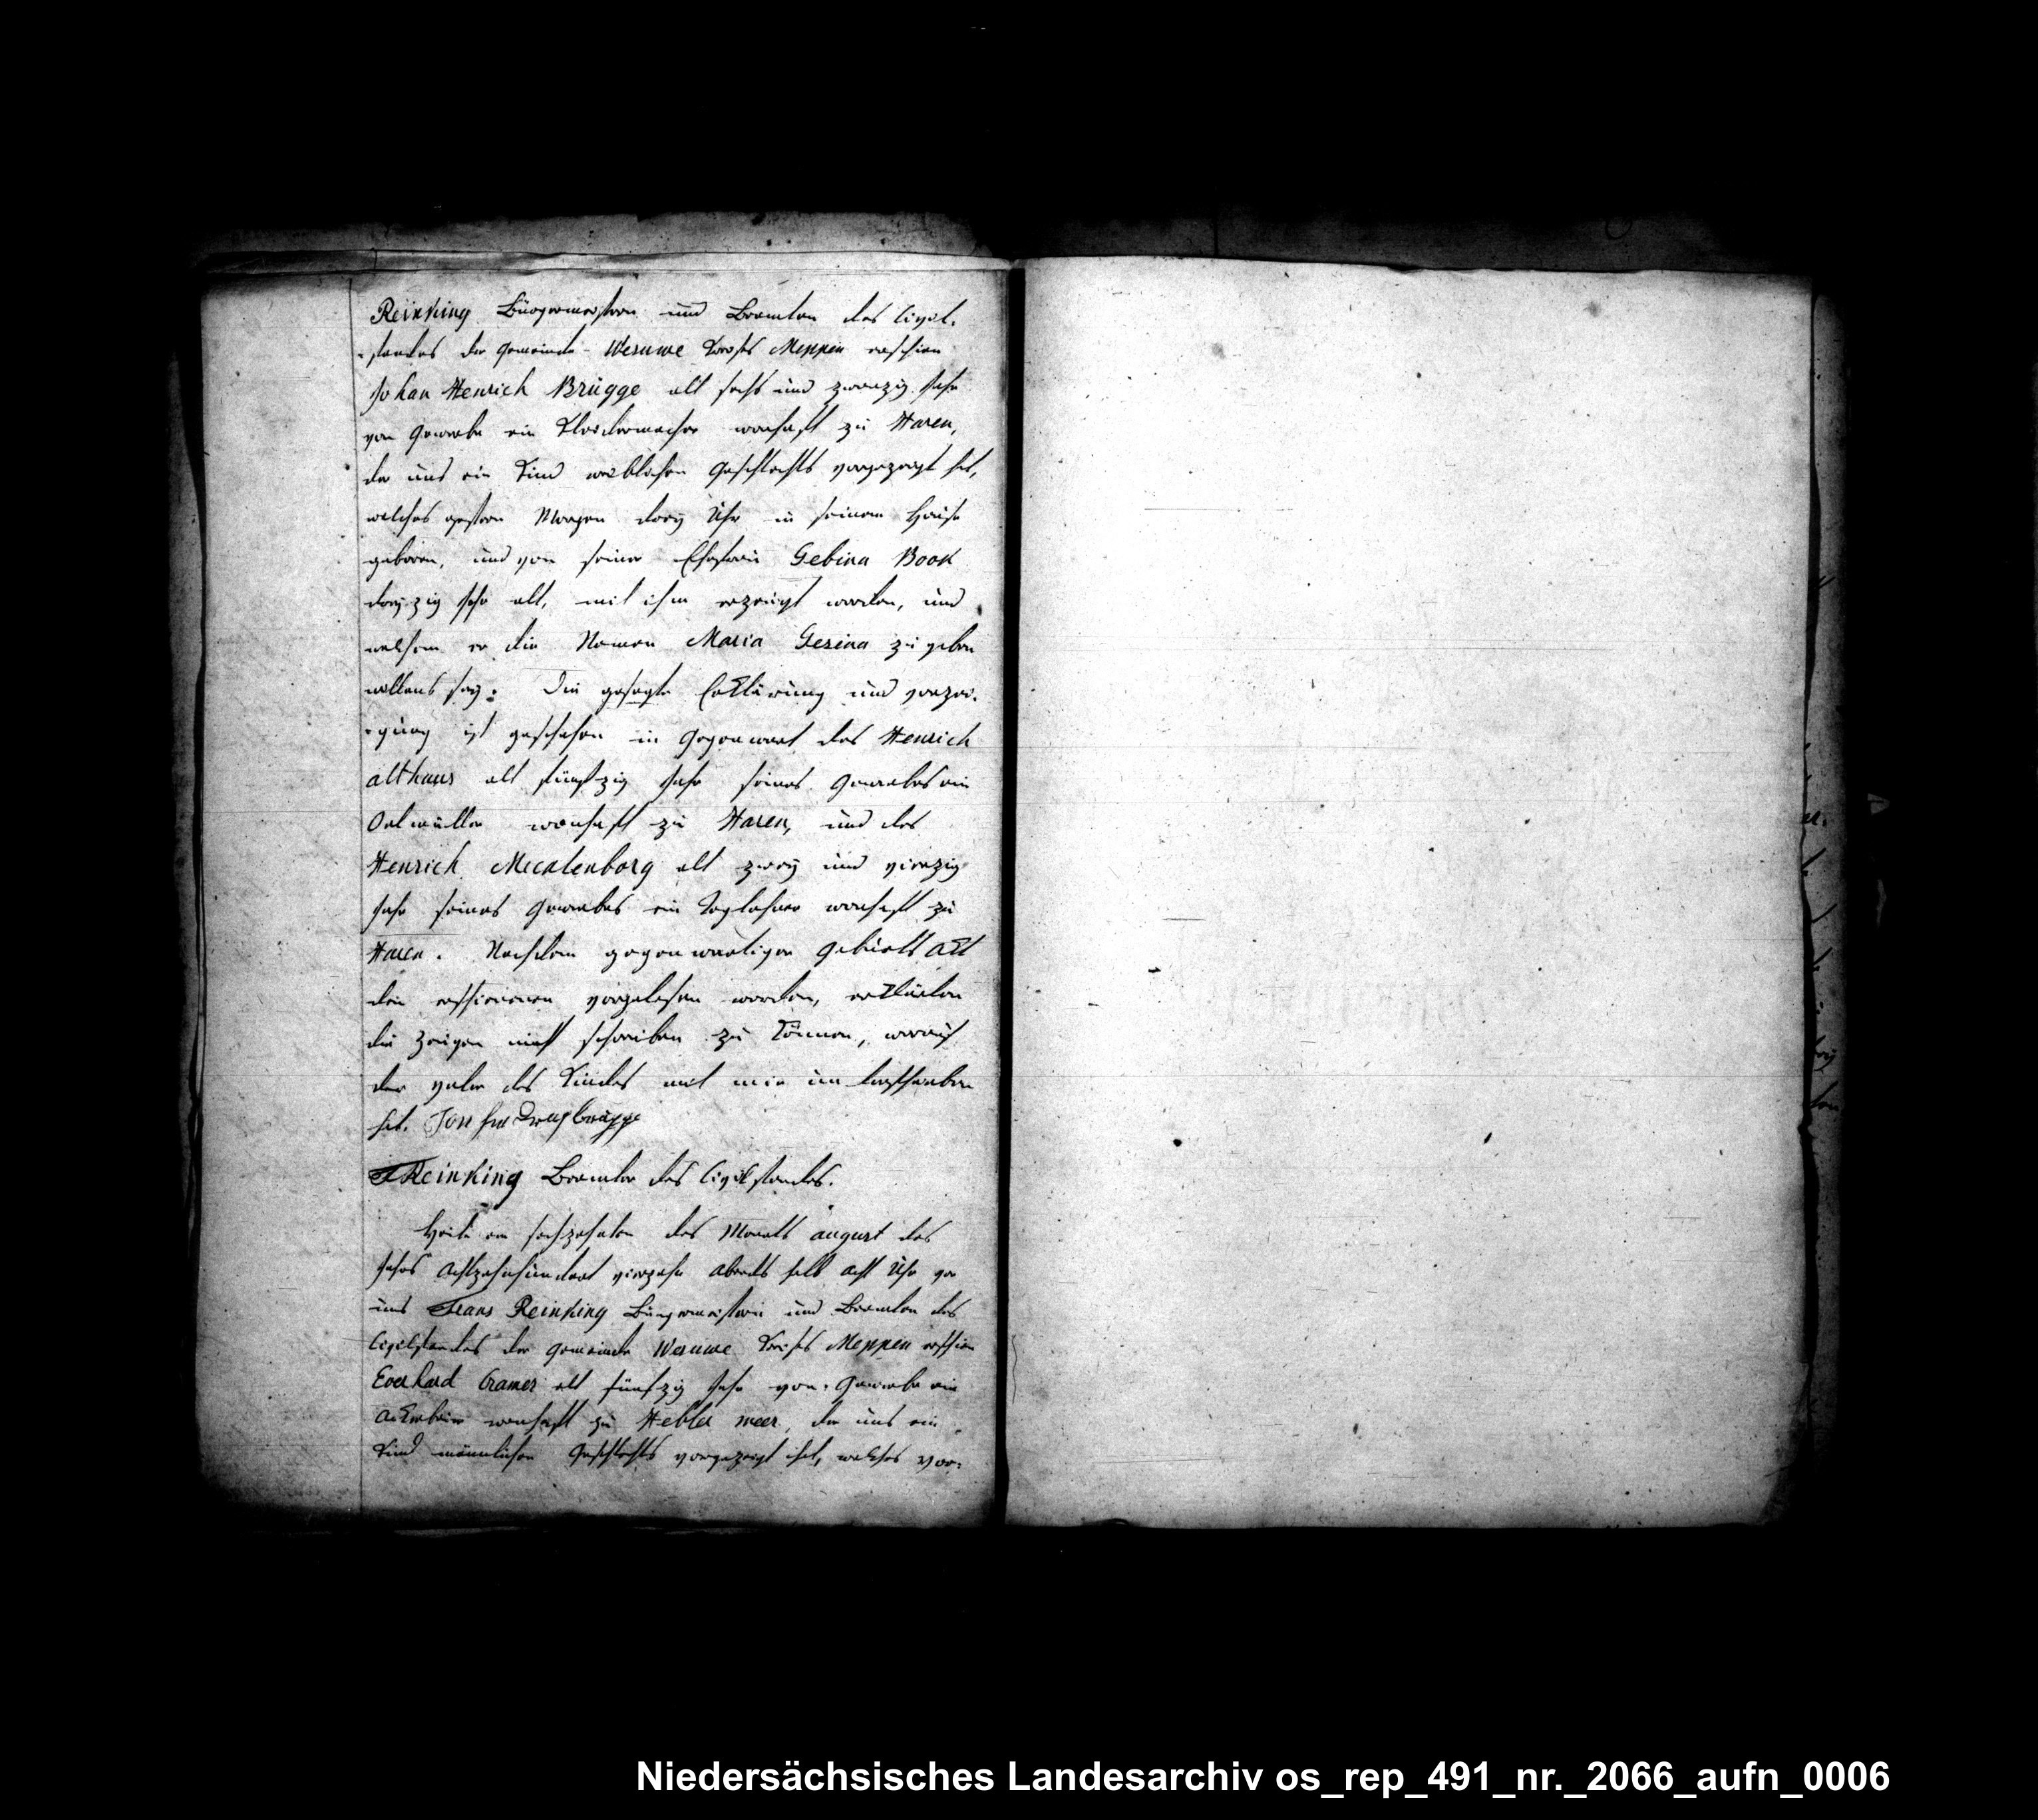 Reinking Bürgermeistern und Beamten des Civil-
-standes der Gemeinde Wesuwe Kreises Meppen erschien
Johan Henrich Brügge alt sechs und zwanzig Jahr
von Gewerbe ein Kleidermacher wonhaft zu Haren,
der uns ein Kind weiblichen Geschlechts vorgezeigt hat,
welches gestern Morgen drey Uhr in seinem Hause
geboren, und von seiner Ehefrau Gebina Book
dreyzig Jahr alt, mit ihm erzeugt worden, und
welchem er die Namen Maria Gesina zu geben
willens sey: Die gesagte Erklärung und vorzei-
-gung ist geschehen in Gegenwart des Henrich
althaus alt fünfzig Jahr seines Gewerbes ein
Oelmüller wonhaft zu Haren, und des
Henrich Mecklenborg alt zwey und vierzig
Jahr seines Gewerbes ein Taglohner wonhaft zu
Haren. Nachdem gegenwärtiger Geburts Act
den erschienenen vorgelesen worden, erklärten
die Zeugen nicht schreiben zu können, worauf
der vater des Kindes mit mir unterschrieben
hat. Brügge
F Reinking Beamter des Civilstandes.
Heute am sechzehnten des Monats august des
Jahrs Achtzehnhundert vierzehn Abends halb acht Uhr vor
uns Frans Reinking Bürgermeistern und Beamten des
Civilstandes der Gemeinde Wesuwe Kreises Meppen erschien
Everhard Cramer alt fünfzig Jahr von Gewerbe ein
Ackerbauer wonhaft zu Hebler meer, der uns ein
Kind männlichen Geschlechts vorgezeigt hat, welches vor-
Niedersächsisches Landesarchiv os_rep_491_nr._2066_aufn_0006